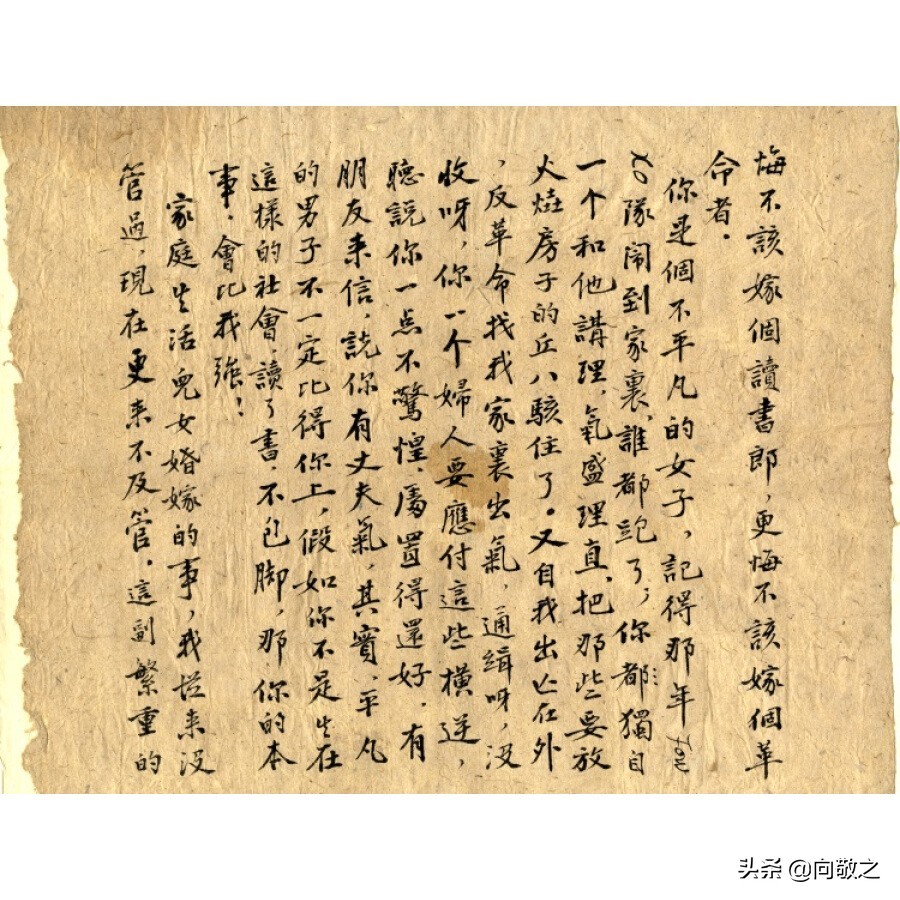 悔不該嫁個讀書郎，更悔不該嫁個革
命者．
你是個不平凡的女子，記得那年
隊鬧到家裏、誰都跑了，你都獨自
一个和他講理，氣盛理直、把那些要放
火燒房子的丘八駭住了。又自我出亡在外
，反革命找我家裏出氣，通緝呀，没
收呀，你一个婦人要應付這些橫逆，
聽説你一点不驚惶、處置得還好．有
朋友来信，説你有丈夫氣，其實，平凡
的男子不一定比得你上，假如你不是生在
這樣的社會，讀了書，不包脚，那你的本
事，會比我強！
家庭生活兒女婚嫁的事，我從来没
管過，現在更来不及管．這副繁重的
头条 @向敬之